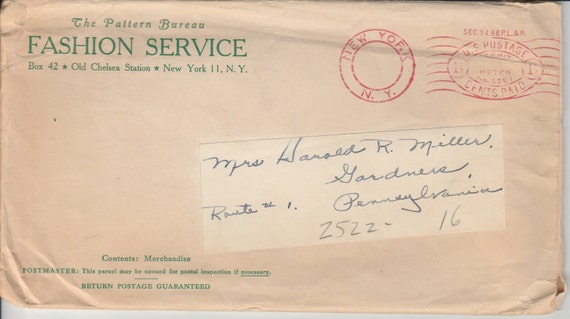 The Pattern Bureau
FASHION SERVICE
Box 42 ★ Old Chelsea Station ★ New York 11, N. Y.
NEW YORK
N. Y.
SEC. 34.66 P.L.&R.
U.S. POSTAGE
METER
CENTS PAID
Mrs Harold R. Miller,
Gardners,
Route #1. Pennsylvania
2522- 16
Contents: Merchandise
POSTMASTER: This parcel may be opened for postal inspection if necessary.
RETURN POSTAGE GUARANTEED